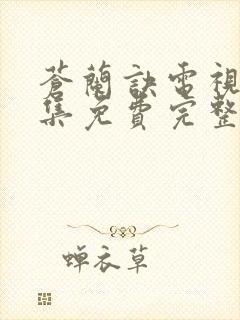 蒼蘭訣電視
集免費完整
蝉衣草